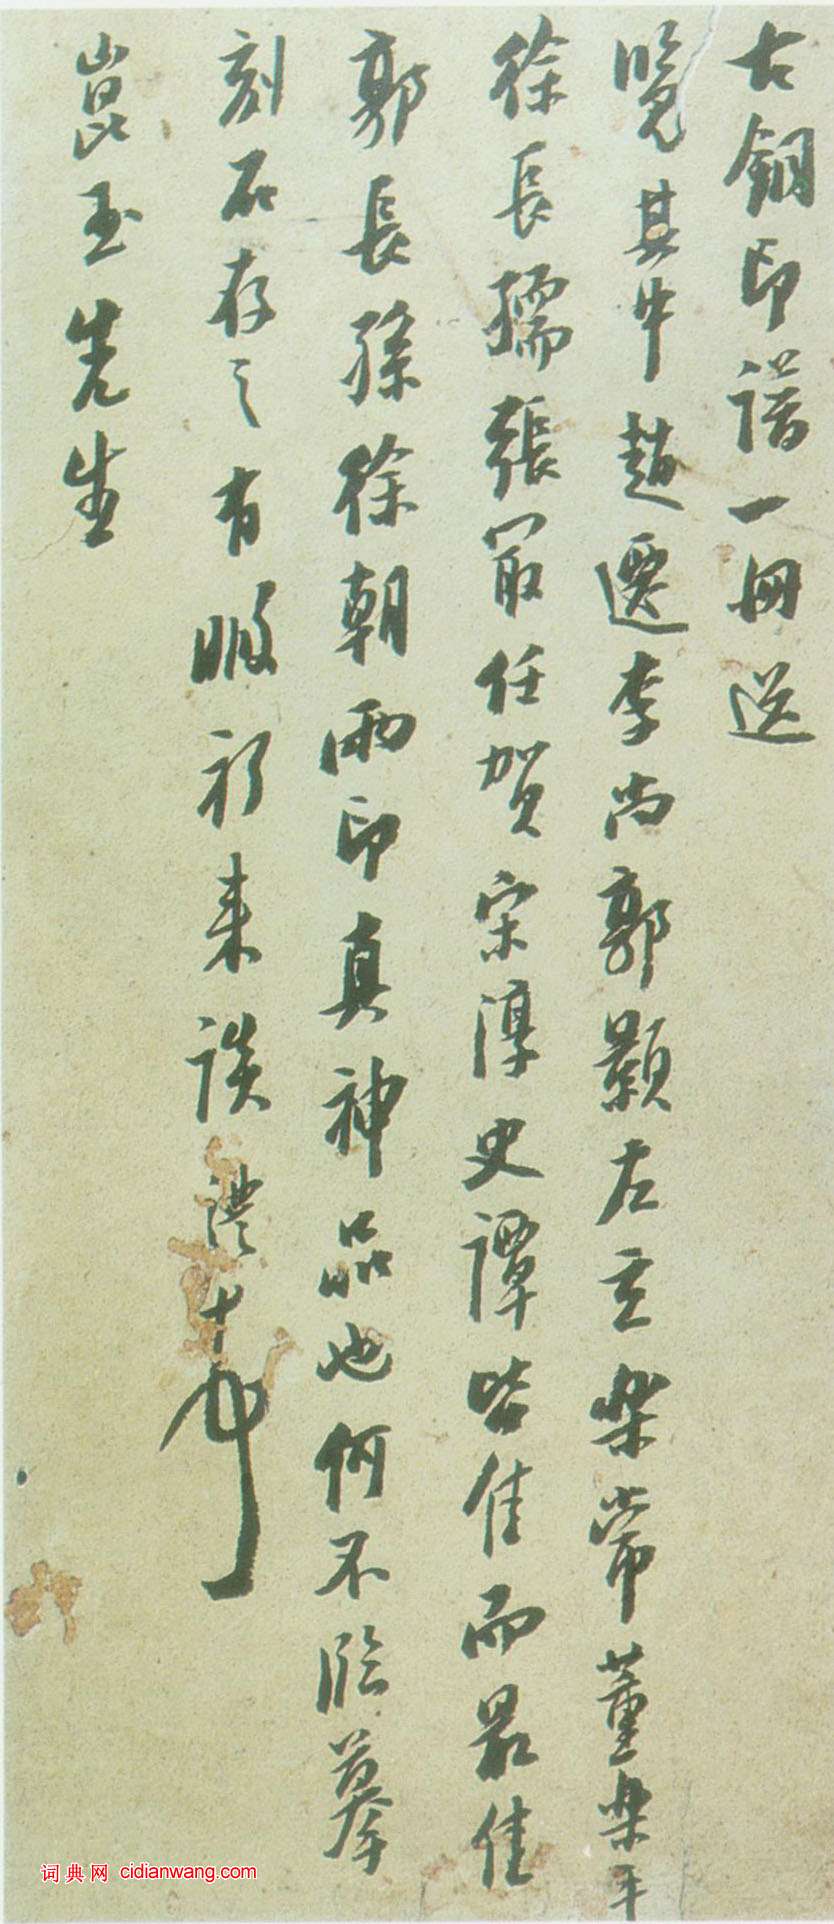 古銅印譜一冊送
覽其中趙遷李尚郭顥左玄樂常董樂平
徐長孺張冣任賀宋淳史譚皆佳而最佳
郭長孫徐朝兩印真神品也何不臨摹
刻石存之有暇祈來談澧十
崑玉先生
词典网 cidianwang.com